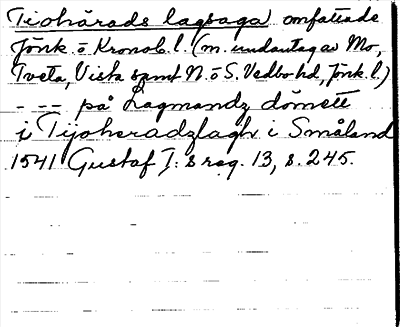 Tiohärads lagsaga omfattade
Jönk. o Kronob. l. (m. undantag av Mo,
Tveta, Vista samt N. o S. Vedbo hd, Jönk. l.)
- -- på Lagmandz dömett
i Tijoheradzlagh i Småland
1541 Gustaf I:s reg. 13, s. 245.